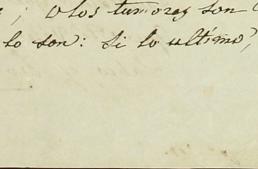 ; O los tumores son
lo son: Si lo ultimo,